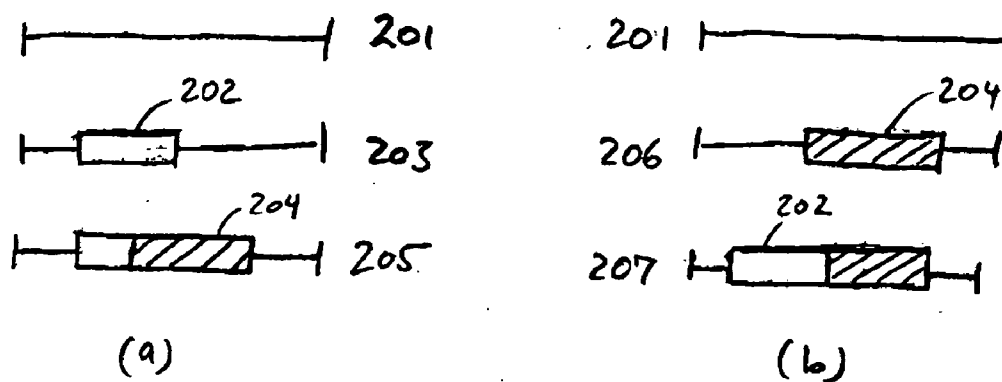 201
202
203
204
205
(a)
201
204
206
202
207
(b)